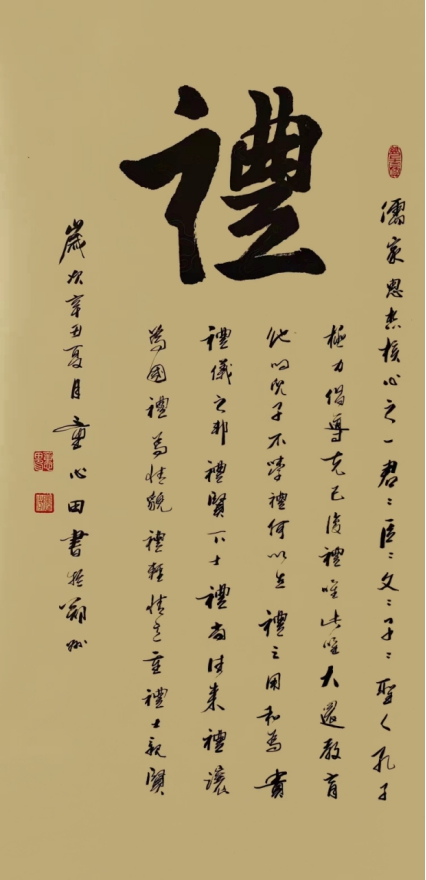 禮
儒家思想核心之一君〻臣〻父〻子〻聖人孔子
極力倡導克己復禮唯此唯大道教育
他的兒子不學禮何以立禮之用和為貴
禮儀之邦禮賢下士禮尚往來禮讓
為國禮為情貌禮輕情意重禮士親賢
歲次辛丑夏月童心田書於